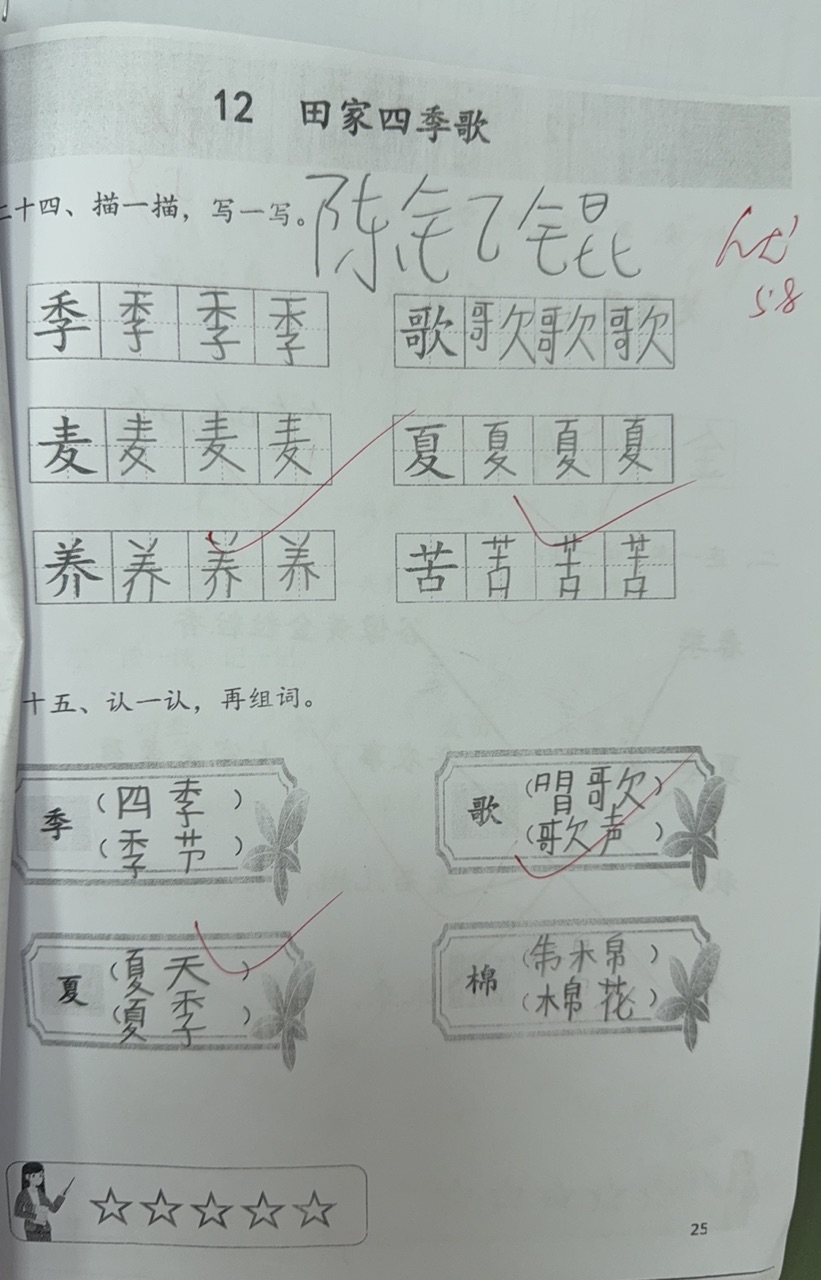 12 田家四季歌
二十四、描一描，写一写。
优
5.8
季 季 季 季 歌 歌 歌 歌
麦 麦 麦 麦 夏 夏 夏 夏
养 养 养 养 苦 苦 苦 苦
十五、认一认，再组词。
季 （四季）
（季节）
歌 （唱歌）
（歌声）
夏 （夏天）
（夏季）
棉 （棉）
（棉花）
25